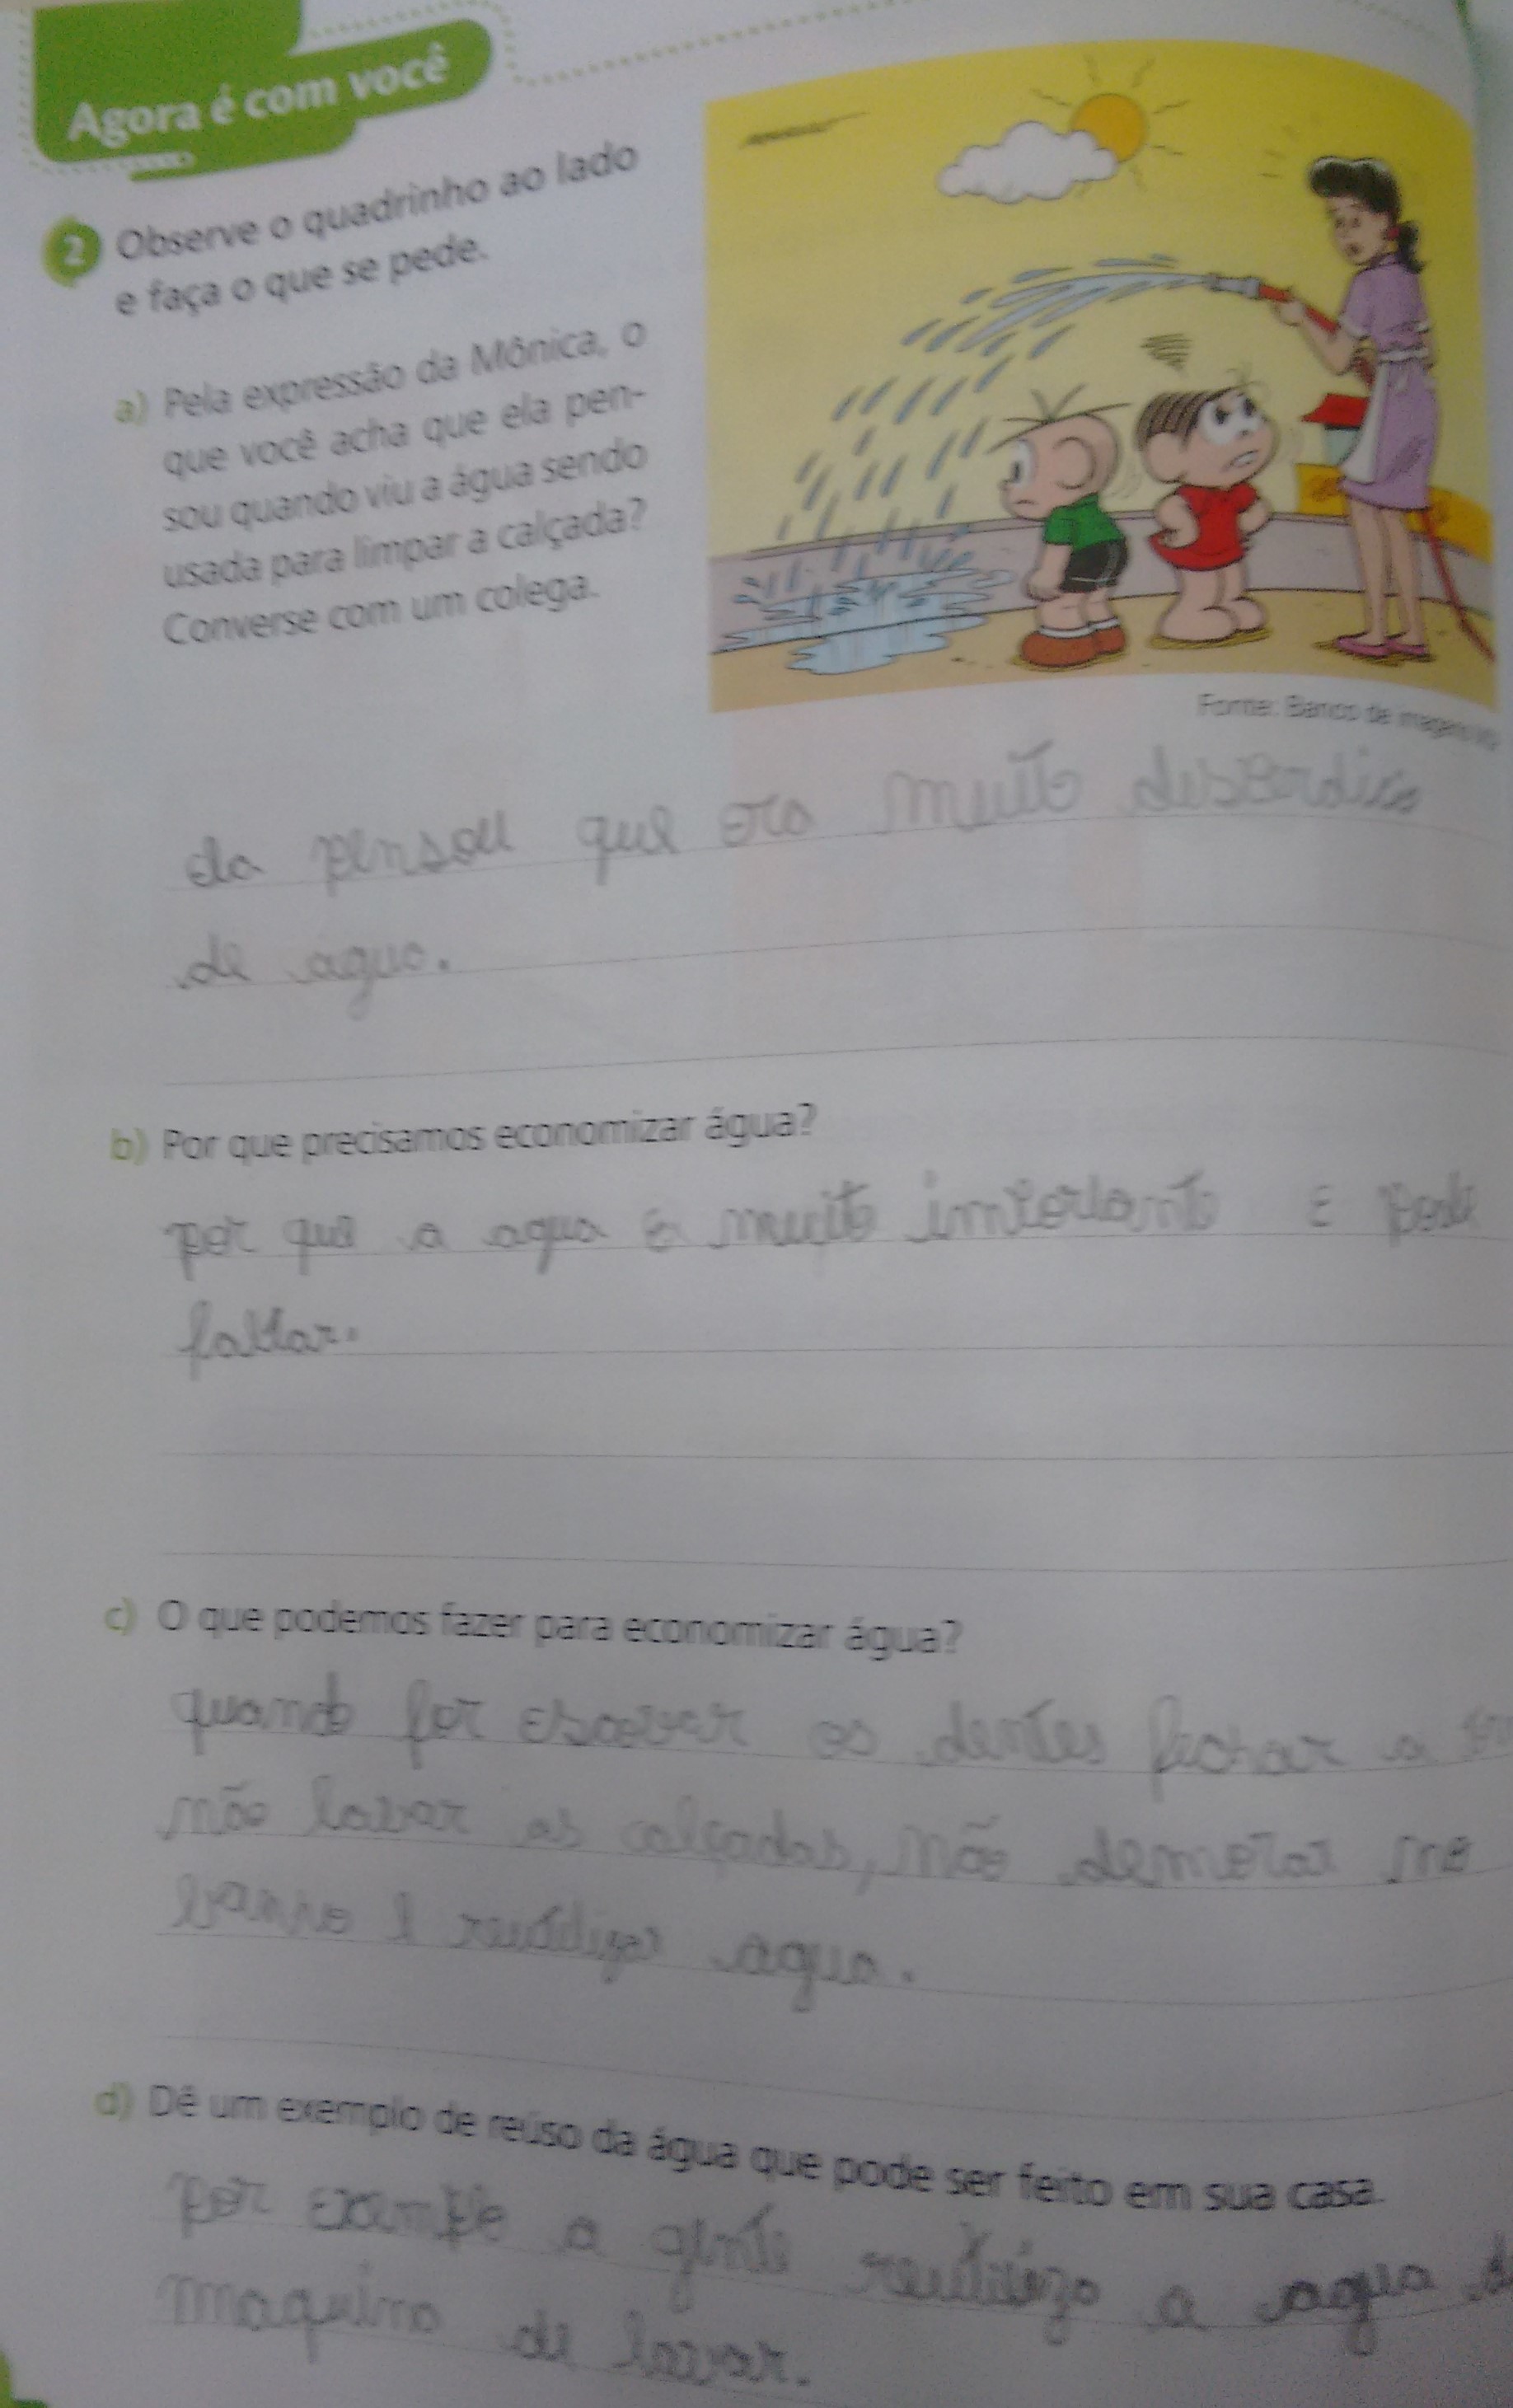 Agora é com você
2 Observe o quadrinho ao lado
e faça o que se pede.
a) Pela expressão da Mônica, o
que você acha que ela pen-
sou quando viu a água sendo
usada para limpar a calçada?
Converse com um colega.
Fonte: Banco de imagens
ela pensou que era muito desperdicio
de água.
b) Por que precisamos economizar água?
por que a agua é muito importante e pode
faltar.
c) O que podemos fazer para economizar água?
quando for escover os dentes fechar a
não lavar as calçadas, não demorar no
banho e reutilizar água.
d) Dê um exemplo de reúso da água que pode ser feito em sua casa.
por exemplo a gente reutiliza a agua
maquina de lavar.